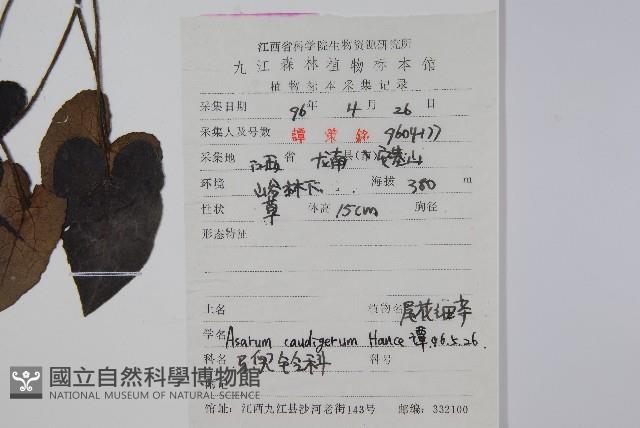 江西省科学院生物资源研究所
九江森林植物标本馆
植物标本采集记录
采集日期 96年 4月 26日
采集人及号数 譚策銘 9604177
采集地 江西省 龙南县(市)安基山
环境 山谷林下 海拔 380 m
性状 草 体高 15cm 胸径
形态特征
土名 植物名 尾花细辛
学名 Asarum caudigerum Hance 譚.96.5.26.
科名 马兜铃科 科号
國立自然科學博物館
NATIONAL MUSEUM OF NATURAL SCIENCE
馆址:江西九江县沙河老街143号 邮编:332100